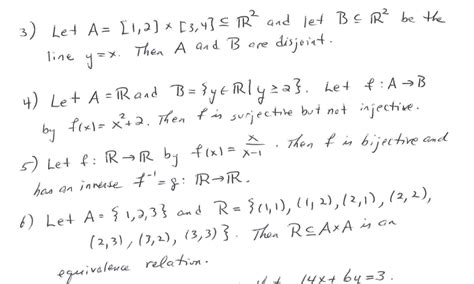 3) Let A = [1,2] × [3,4] ⊆ ℝ² and let B ⊆ ℝ² be the
line y = x. Then A and B are disjoint.
4) Let A = ℝ and B = {y ∈ ℝ | y ≥ 2}. Let f: A → B
by f(x) = x² + 2. Then f is surjective but not injective.
5) Let f: ℝ → ℝ by f(x) = x/(x-1). Then f is bijective and
has an inverse f⁻¹ = g: ℝ → ℝ.
6) Let A = {1,2,3} and R = {(1,1), (1,2), (2,1), (2,2),
(2,3), (3,2), (3,3)}. Then R ⊆ A×A is an
equivalence relation.
14x + 6y = 3.